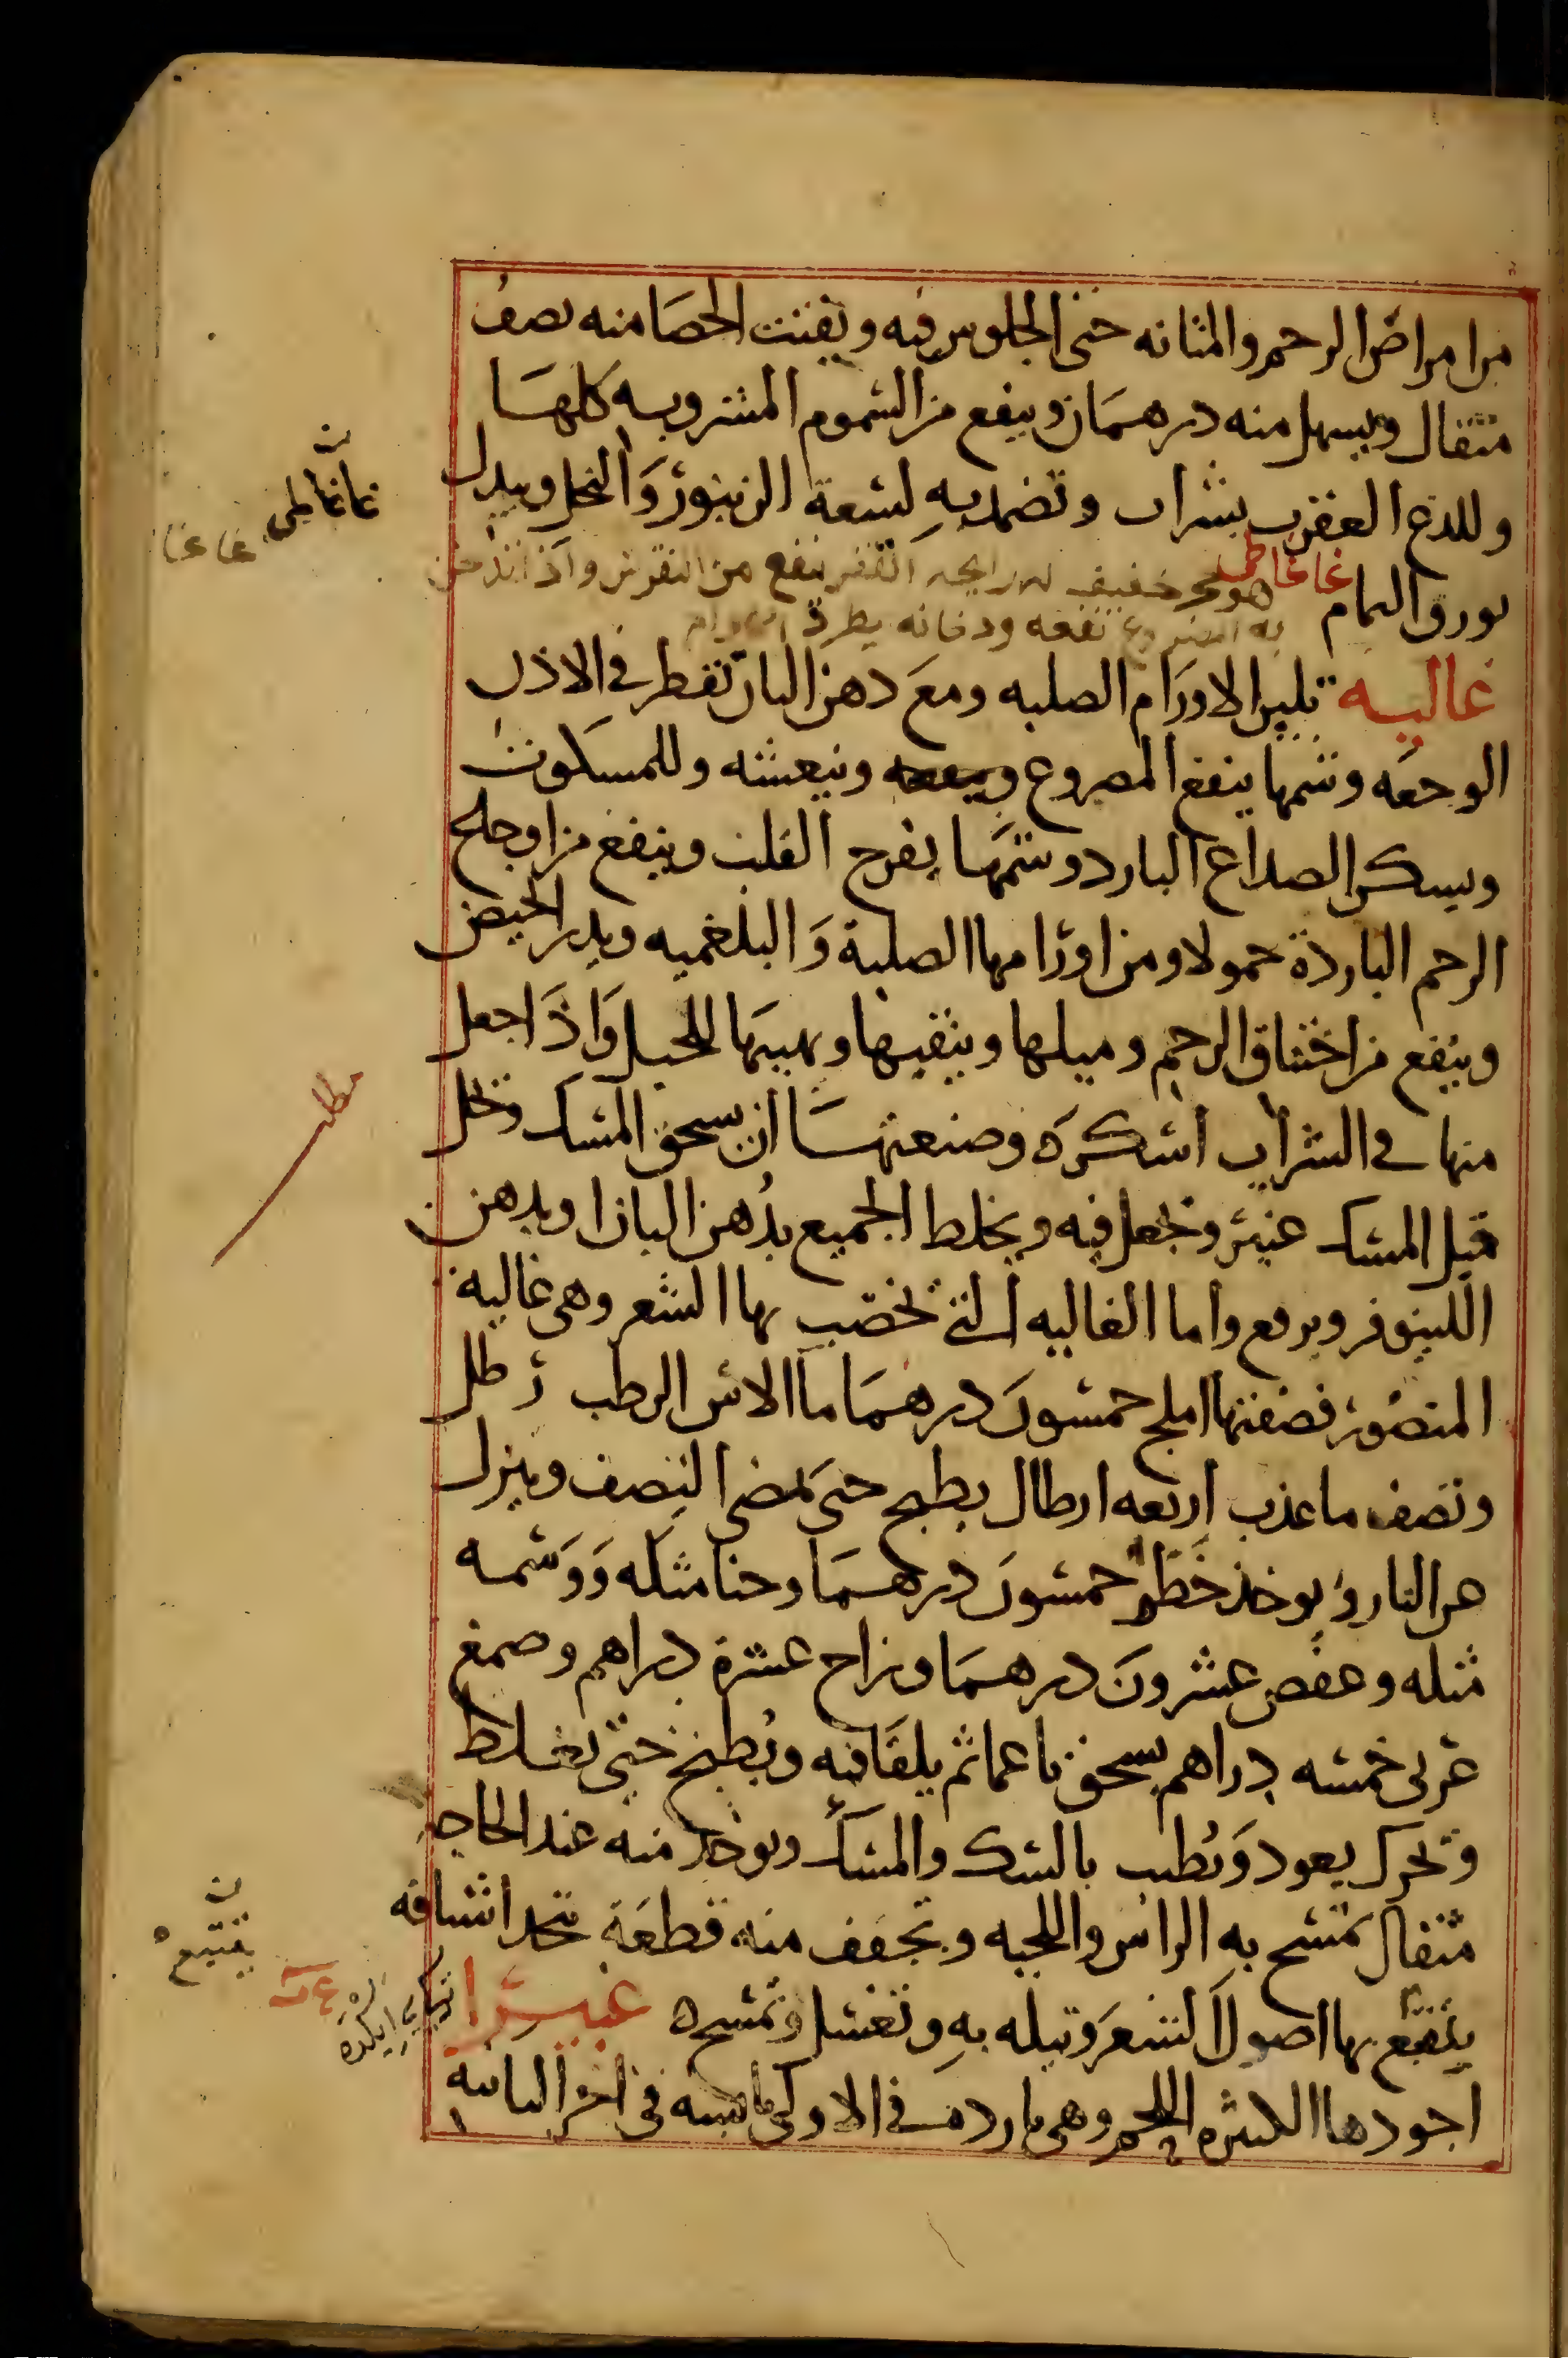 من امراض الرحم والمثانه حتى الجلوس فيه ويفتت الحصا منه نصف
مثقال ويسهل منه درهمان وينفع من السموم المشروبه كلها
وللدغ العقرب بشراب وتضمد به لسعة الزنبور والنحل ويبدل
بورق النمام
غاغاطيس هو حجر خفيف له رايحه القفر ينفع من النقرس واذا تدخن
به المصروع نفعه ودخانه يطرد الهوام
غاليه تلين الاورام الصلبه ومع دهن البان تقطر في الاذن
الوجعه وشمها ينفع المصروع وينعشه وللمسكوت
ويسكن الصداع البارد وشمها يفرح القلب وينفع من اوجاع
الرحم الباردة حمولا ومن اورامها الصلبة والبلغميه ويدر الحيض
وينفع من اختناق الرحم وميلها وينقيها ويهييها للحبل واذا جعل
منها في الشراب اسكره وصنعتها ان يسحق المسك وتحل
قبل المسك عنبر وتجعل فيه ويخلط الجميع بدهن البان او بدهن
اللينوفر ويرفع واما الغاليه التي تخضب بها الشعر وهي غالية
المنصور فصفتها املج خمسون درهما ما الاس الرطب رطل
ونصف ما عذب اربعه ارطال يطبخ حتى يمضي النصف وينزل
عن النار ويوخذ خطر خمسون درهما وحنا مثله ووسمه
مثله وعفص عشرون درهما وزاج عشرة دراهم وصمغ
عربي خمسه دراهم يسحق ناعما ثم يلقا فيه ويطبخ حتى يغلظ
وتحرك بعود ويطيب بالسك والمسك ويوخذ منه عند الحاجه
مثقال تمسح به الراس واللحيه وتجفف منه قطعة تتخذ اشيافه
يتتبع بها اصول الشعر وتبله به وتغسل وتمسح ه غبيرا
اجودها الكثيره اللحم وهي بارده في الاولى يابسه في اخر الثانيه
ن
غاغاطيس
غاغا
مطلب
ن
يتتبع